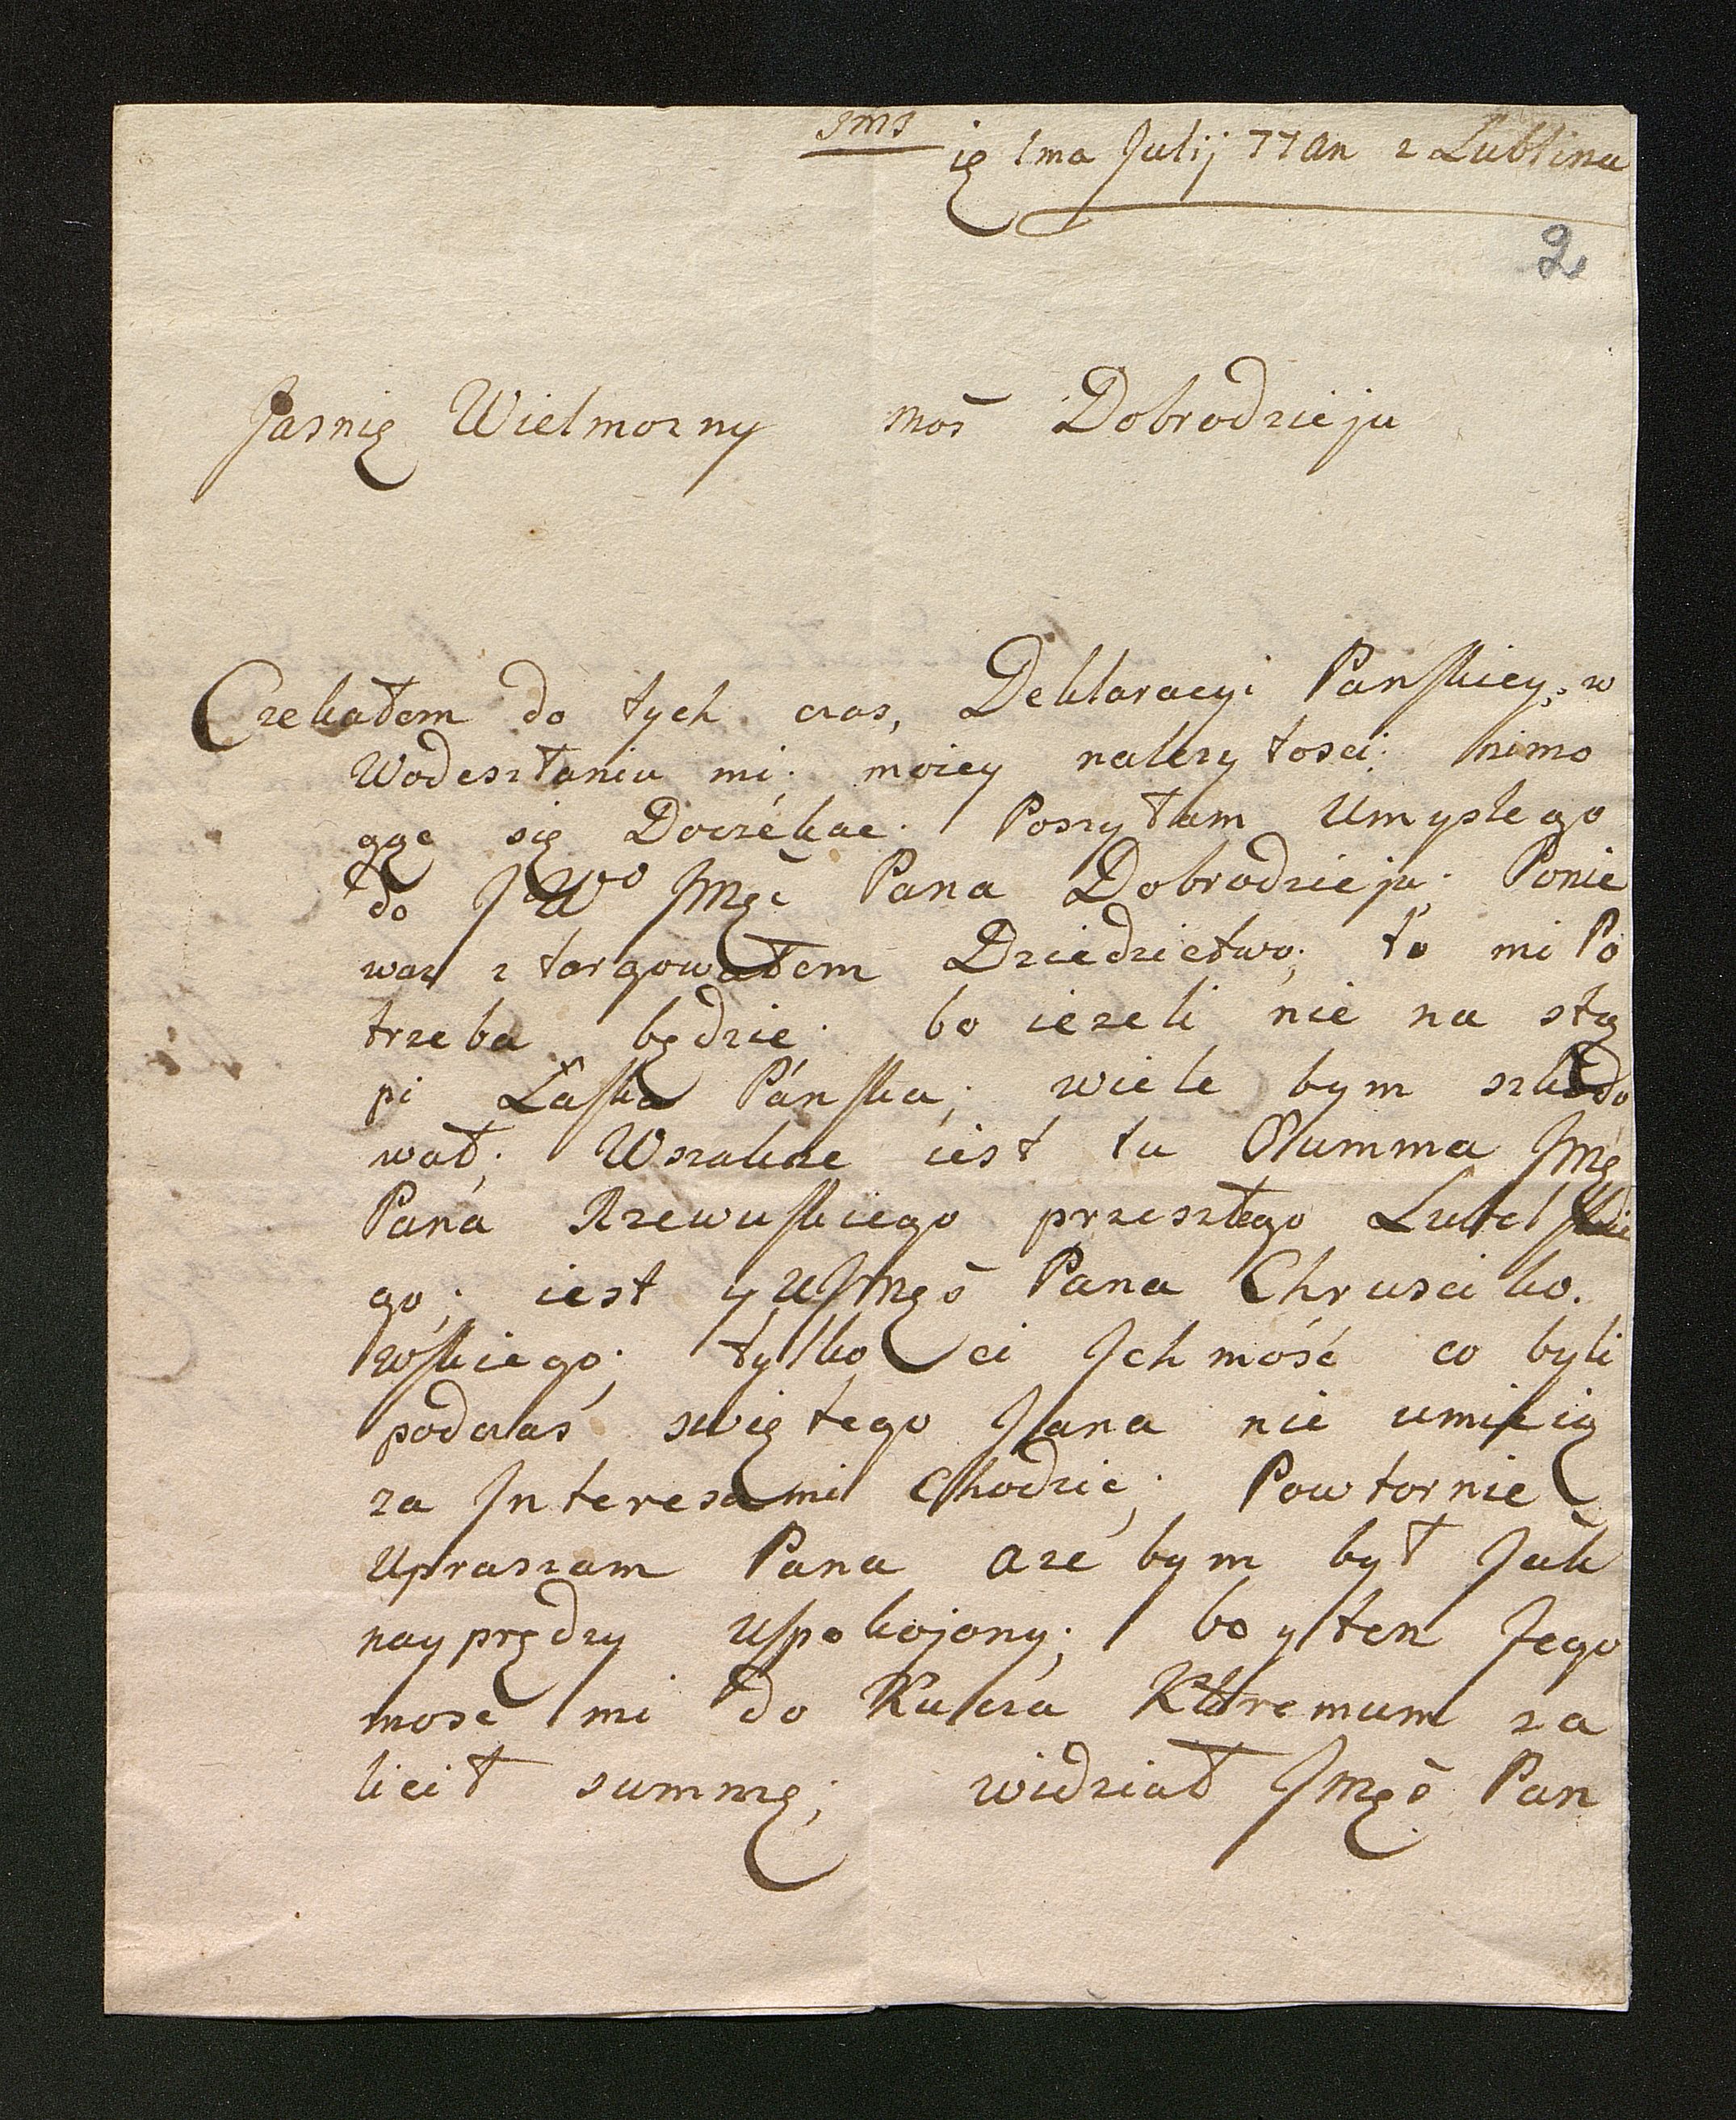 ię 1ma Julij 77 an z Lublina
2
Jasnię Wielmozny Moś Dobrodzieju
Czekałem do tych czas, Deklaracyi Panskiey, w
Wodeszłaniu mi moiey nalezytosci nimo
gąc się Doczekac. Poszyłam Umyslego
do JWo JMści Pana Dobrodzieju. Ponie
waz ztargowałem Dziedzictwo, to mi Po
trzeba będzie bo iezeli nie na stą
pi Łaska Pánska, wiele bym szkodo
wał; Wszakze iest tu Summa JMę
Pana Rzewuskiego przeszłego Lubelskie
go; iest y u JMęś Pana Chrusciko.
wskiego; tylko ci Jchmość co byli
podczas swiętego Jana nie umieią
za Jnteresami Chodzic; Powtornie
Upraszam Pana azebym był Jak
nayprędzy uspokojony; bo y ten Jego
mosc mi do Kucza Któremum za
liczł summę; widział JMęś Pan